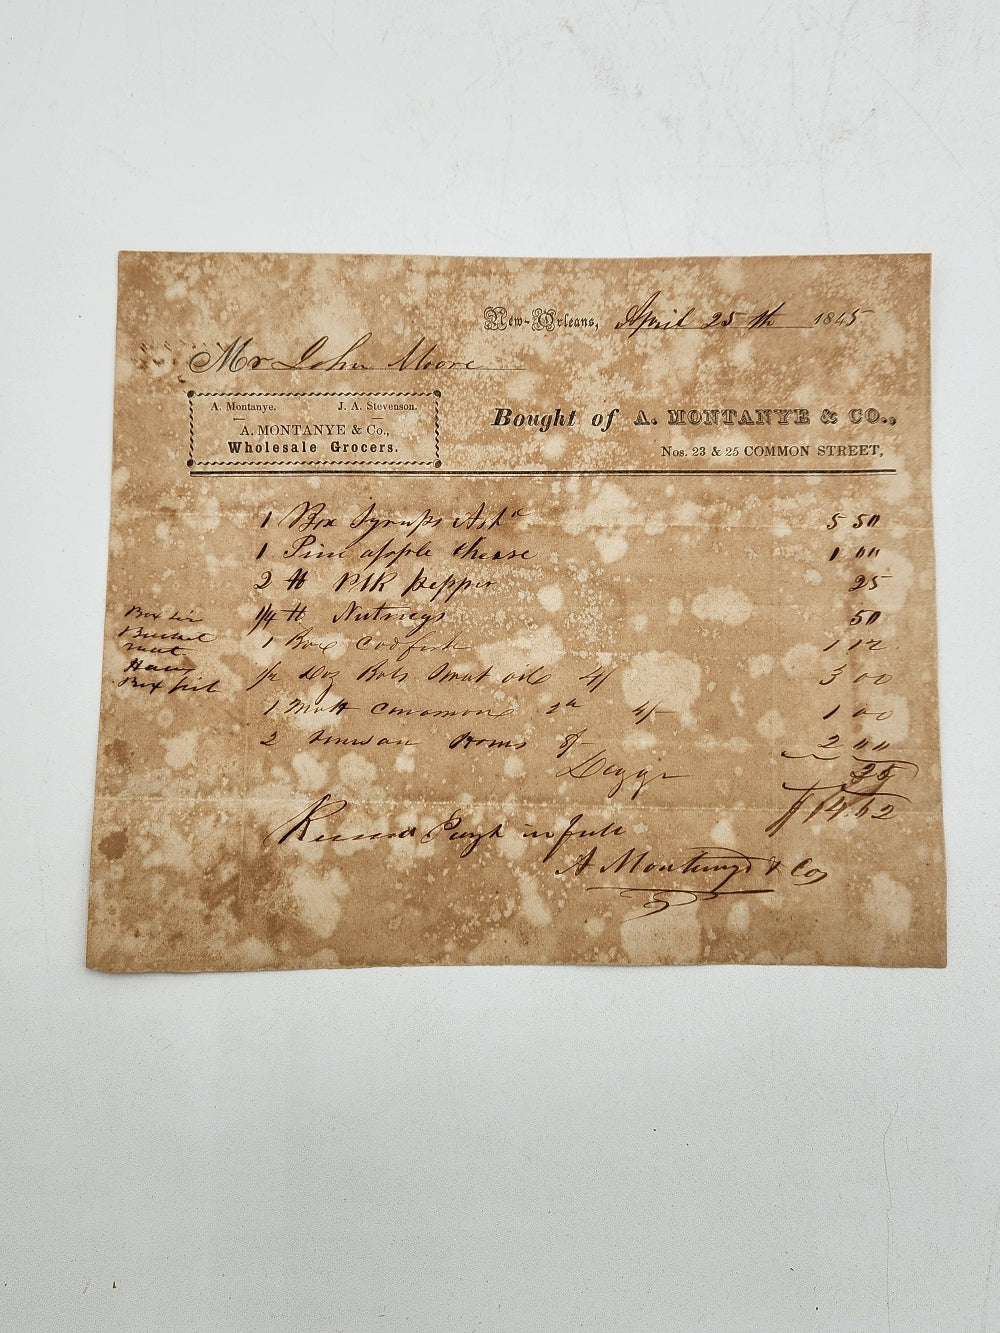 New-Orleans, April 25 th 1845
Mr John Moore
A. Montanye. J. A. Stevenson.
A. MONTANYE & Co.,
Wholesale Grocers.
Bought of A. MONTANYE & CO.,
Nos. 23 & 25 COMMON STREET,
1 Box Syrups Astd 5 50
1 Pine apple Cheese 1 00
2 ℔ Pepper 25
1/4 ℔ Nutmegs 50
1 Box Codfish 1 12
1/2 Doz Bots oil 4/ 3 00
1 Matt Cinamon 4/- 1 00
2 Hams 2 00
25
$14.62
Received Payt in full
A Montanye & Co
Box
Bucket
Hams
Box